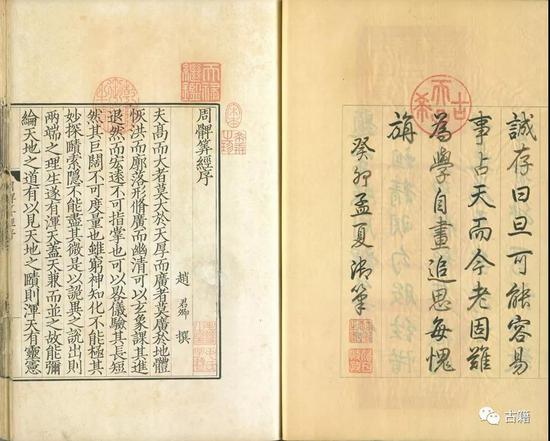 誠存曰旦可能容易
事占天而今老固難
為學自畫追思每愧
旃
癸卯孟夏御筆
古希天子
天祿繼鑑
周髀算經序
趙君卿撰
夫髙而大者莫大於天厚而廣者莫廣於地體
恢洪而廓落形脩廣而幽清可以玄象課其進
退然而宏遠不可指掌也可以晷儀驗其長短
然其巨闊不可度量也雖窮神知化不能極其
妙探賾索隱不能盡其微是以詭異之說出則
兩端之理生遂有渾天蓋天兼而並之故能彌
綸天地之道有以見天地之賾則渾天有靈憲
古籍